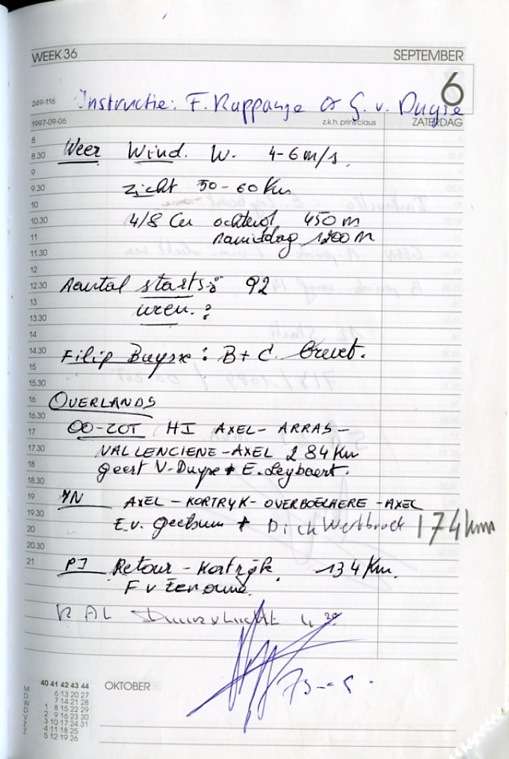 WEEK 36 SEPTEMBER
6
249-116 Instructie: F. Ruppange & G. v. Duyse
1997-09-06 z.k.h. prins claus ZATERDAG
8
8.30 Weer Wind. W. 4-6 m/s.
9
9.30 zicht 50-60 Km
10
10.30 4/8 Cu ochtend 450 m
11 namiddag 1200 m
11.30
12
12.30 Aantal starts: 92
13 uren.?
13.30
14
14.30 Filip Buysse: B+C Brevet.
15
15.30
16 OVERLANDS
16.30
17 OO-ZOT HI AXEL-ARRAS-
17.30 VALLENCIENE-AXEL 284 Km
18 geert V-Duyse + E. Leybaert.
18.30
19 YN AXEL-KORTRYK-OVERBOELHERE-AXEL
19.30 E.v. + Dick 174 km
20
20.30
21 PJ Retour - Kortrijk 134 Km.
F v
RAL 4
40 41 42 43 44 OKTOBER
M 6 13 20 27
D 7 14 21 28
W 1 8 15 22 29
D 2 9 16 23 30
V 3 10 17 24 31
Z 4 11 18 25
Z 5 12 19 26